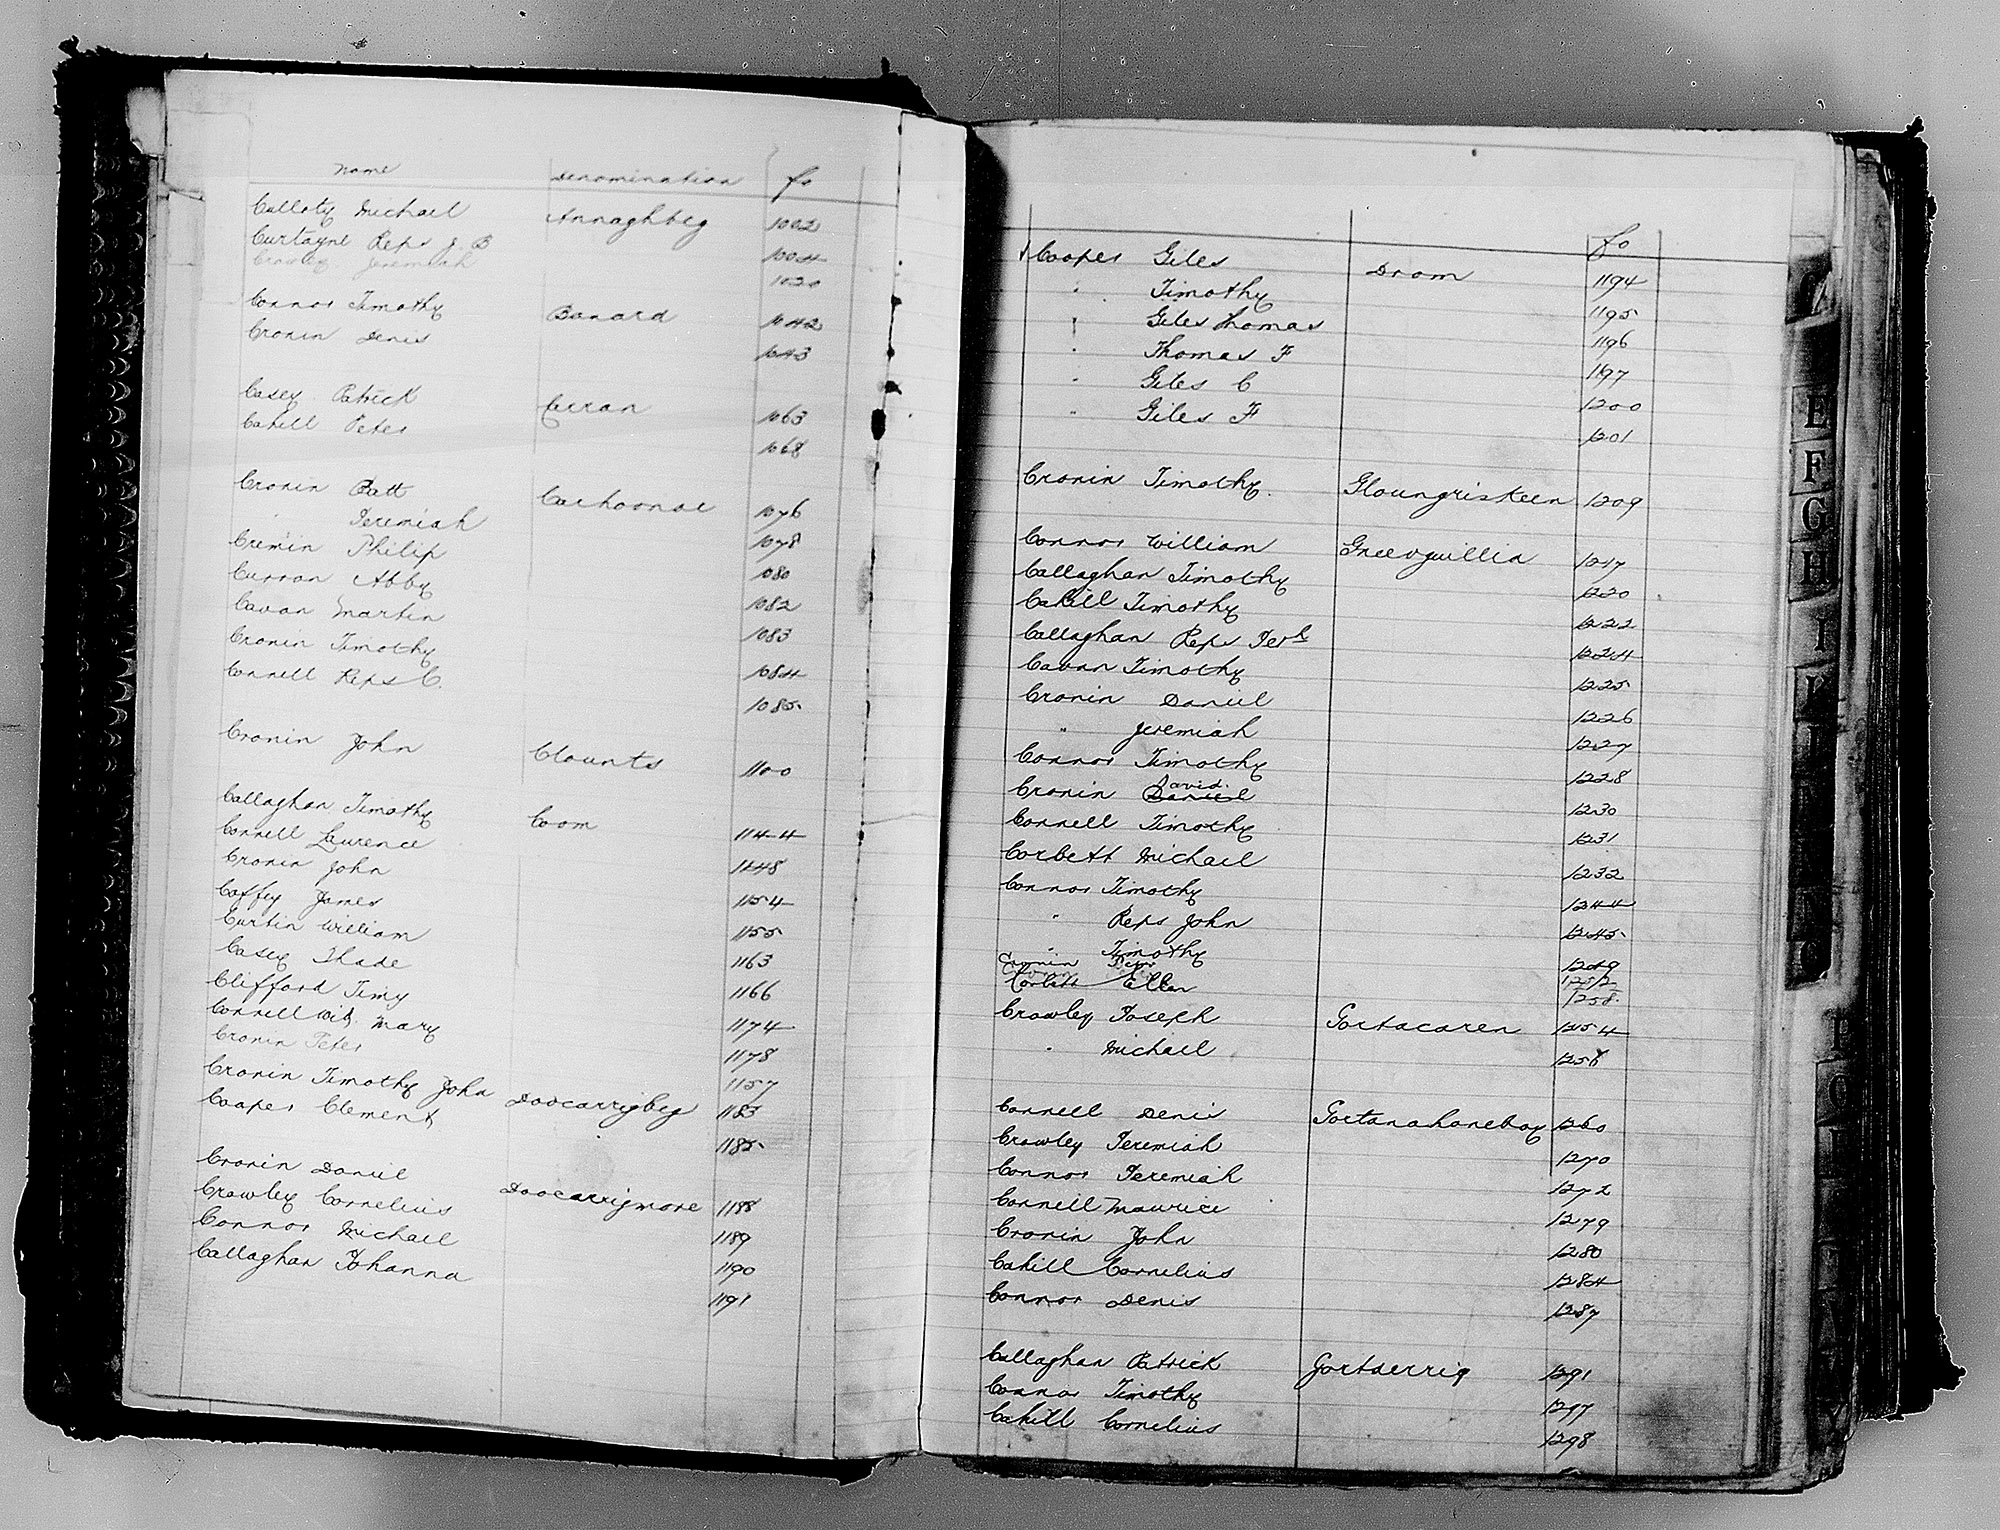 Name Denomination fo
Colloty Michael Annaghbeg 1002
Curtayne Reps J. B 1004
Crowley Jeremiah 1020
Connor Timothy Banard 1042
Cronin Denis 1043
Casey Patrick Carran 1063
Cahill Peter 1068
Cronin Batt Carhoonoe 1076
" Jeremiah 1078
Cremin Philip 1080
Curran Abby 1082
Cavan Martin 1083
Cronin Timothy 1084
Connell Reps C. 1085
Cronin John Clounts 1100
Callaghan Timothy Coom 1144
Connell Laurence 1148
Cronin John 1154
Coffey James 1155
Curtin William 1163
Casey Thade 1166
Clifford Timy 1174
Connell Wid. Mary 1178
Cronin Peter 1157
Cronin Timothy John Doocarrigbeg 1183
Cooper Clement 1185
Cronin Daniel Doocarrigmore 1188
Crowley Cornelius 1189
Connor Michael 1190
Callaghan Johanna 1191
fo
Cooper Giles Drom 1194
" Timothy 1195
" Giles Thomas 1196
" Thomas F 1197
" Giles C 1200
" Giles F 1201
Cronin Timothy. Gloungristeen 1209
Connor William Gneevguillia 1217
Callaghan Timothy 1220
Cahill Timothy 1222
Callaghan Reps Jerh 1224
Cavan Timothy 1225
Cronin Daniel 1226
" Jeremiah 1227
Connor Timothy 1228
David.
Cronin Daniel 1230
Connell Timothy 1231
Corbett Michael 1232
Connor Timothy 1244
" Reps John 1245
" Timothy 1249
Cronin 1252
Corbett Ellen 1258
Crowley Joseph Gortacaren 1254
" Michael 1258
Connell Denis Gortanahaneboy 1260
Crowley Jeremiah 1270
Connor Jeremiah 1272
Connell Maurice 1279
Cronin John 1280
Cahill Cornelius 1284
Connor Denis 1287
Callaghan Patrick Gortderrig 1291
Connor Timothy 1297
Cahill Cornelius 1298
E
F
G
H
I
K